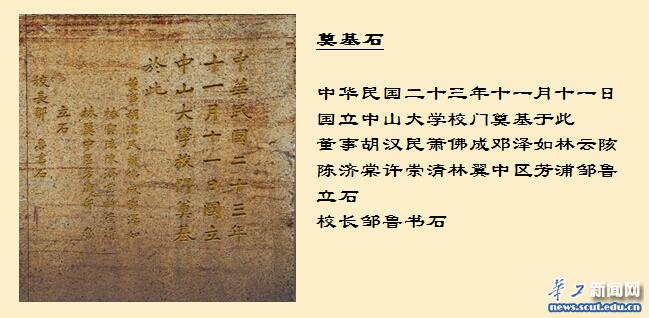 中華民國二十三年
十一月十一日國立
中山大學校門奠基
於此
董事胡漢民蕭佛成鄧澤如
立石
校長鄒魯書石
奠基石
中华民国二十三年十一月十一日
国立中山大学校门奠基于此
董事胡汉民萧佛成邓泽如林云陔
陈济棠许崇清林翼中区芳浦邹鲁
立石
校长邹鲁书石
华工新闻网
news.scut.edu.cn